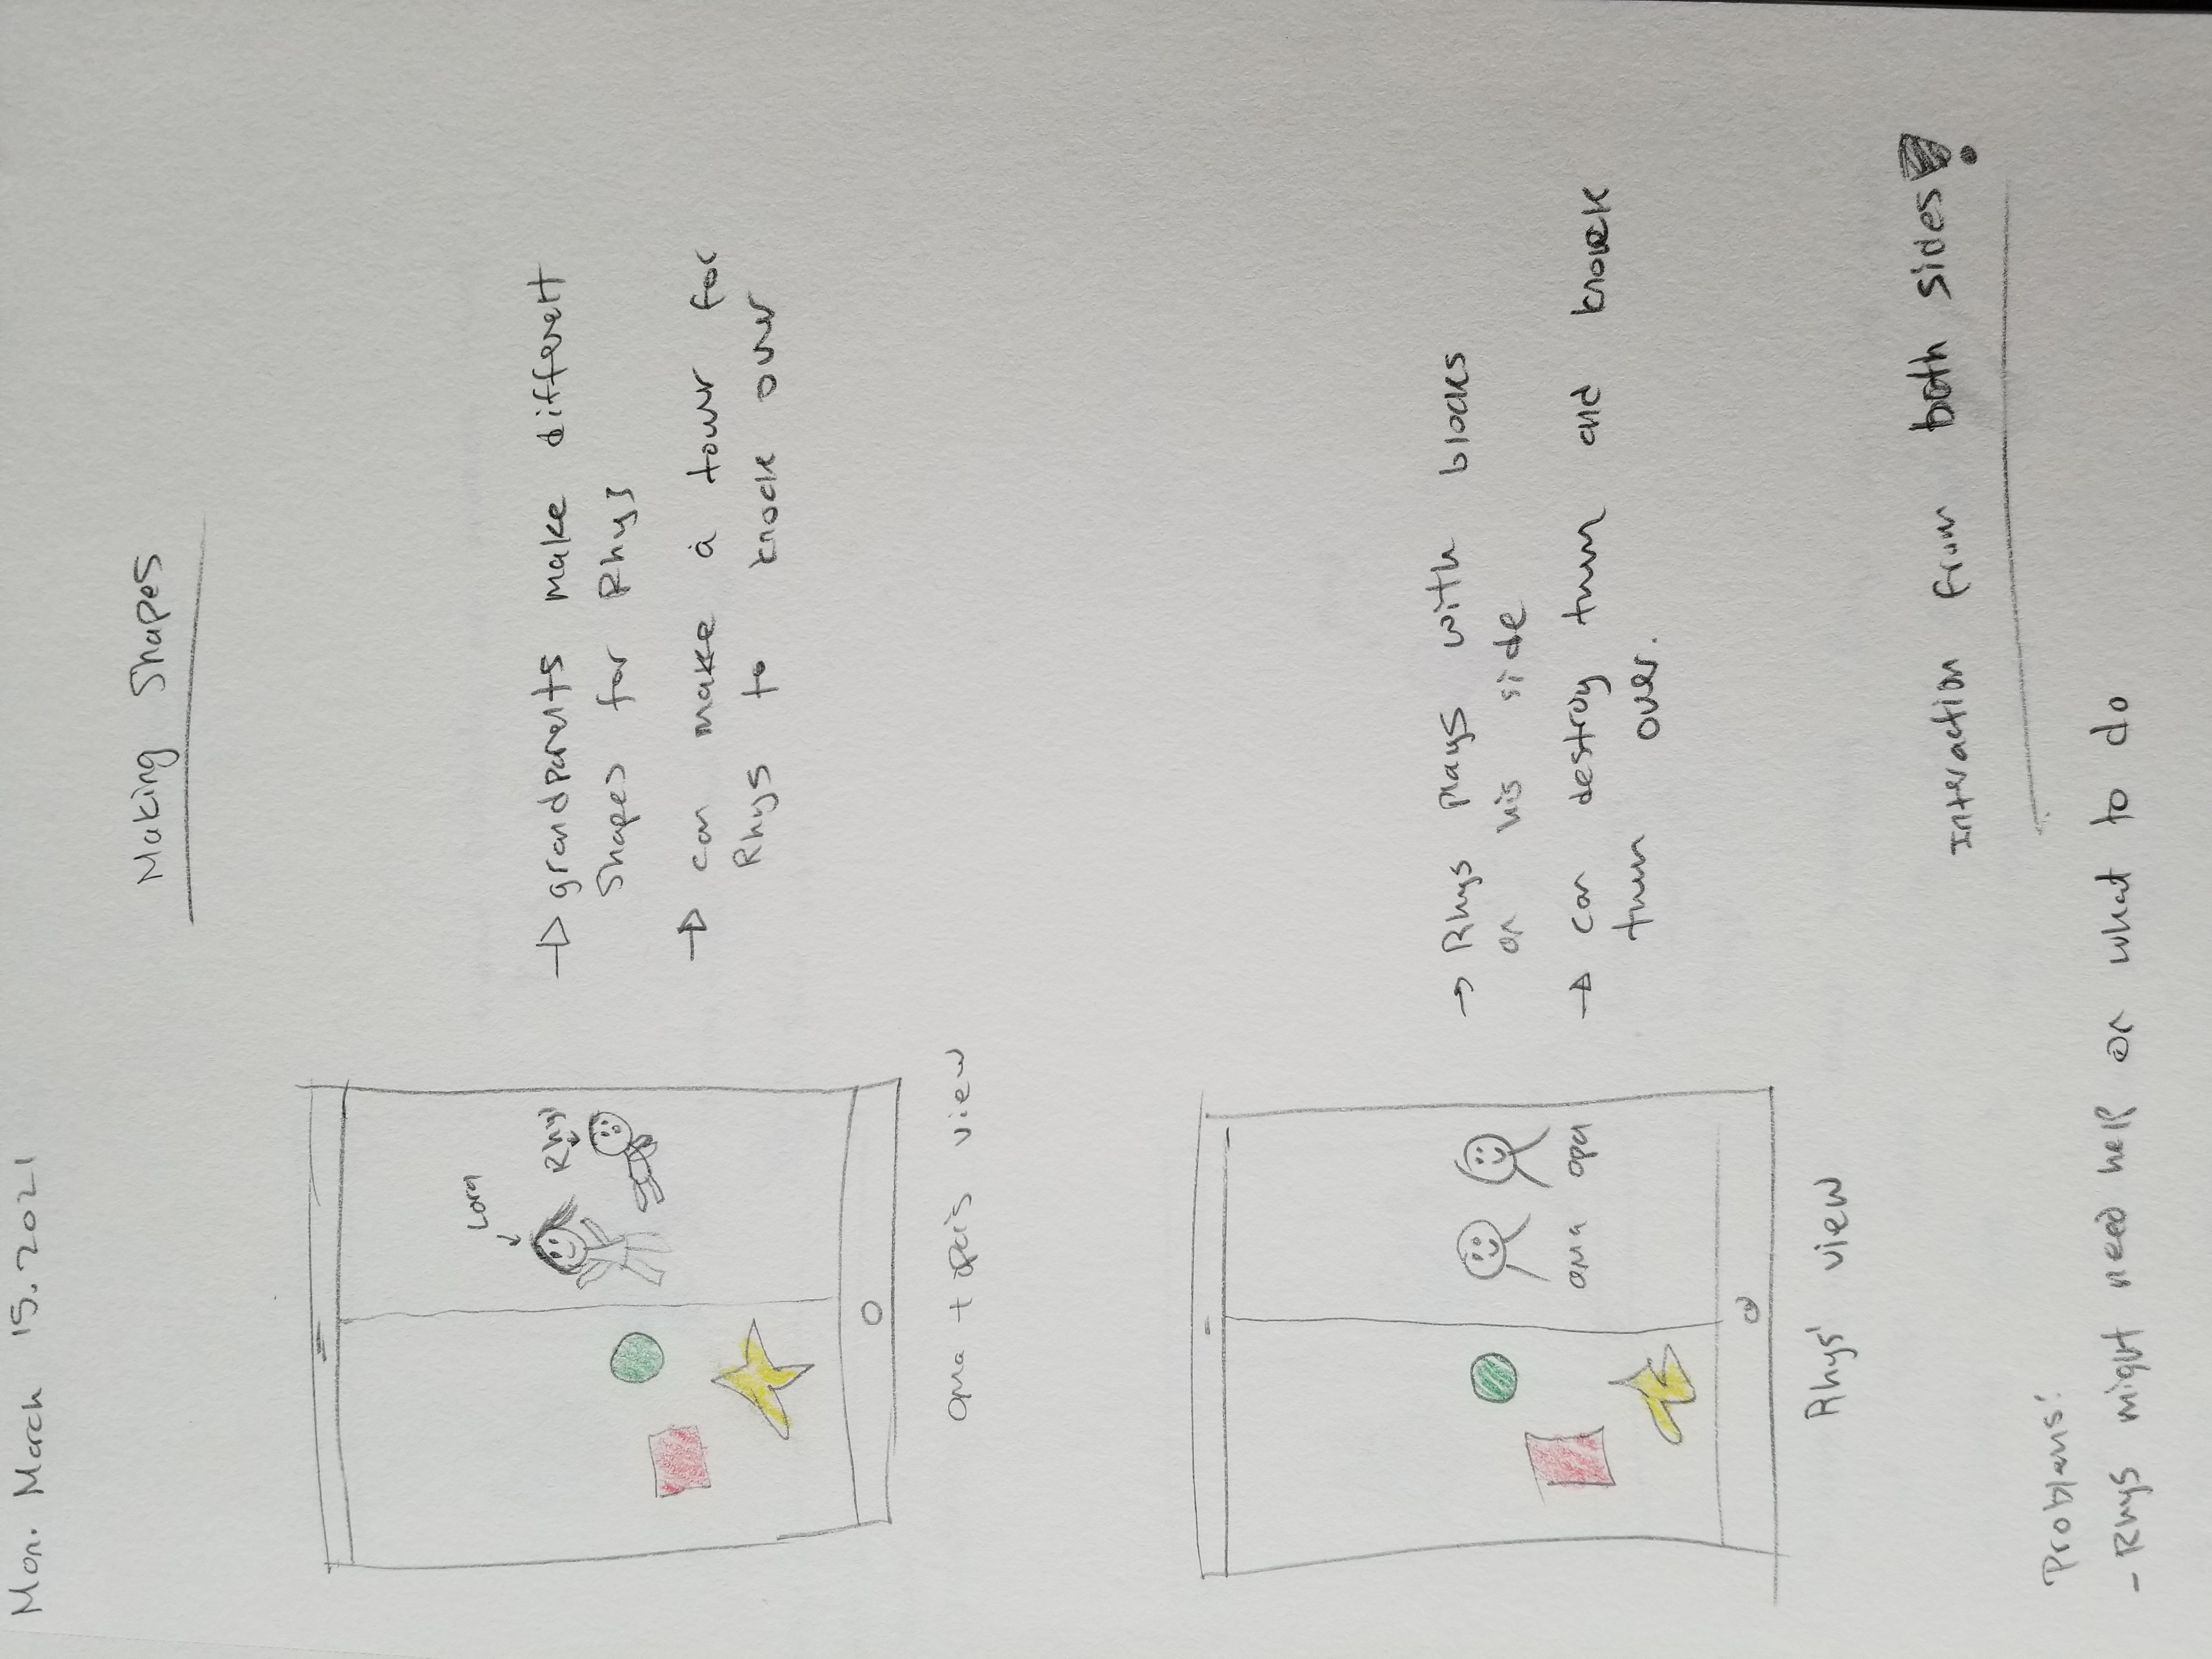 Mon. March 15. 2021
Making Shapes
Lora
Rhys
→ grandparents make different
shapes for Rhys
→ can make a tower for
Rhys to knock over
oma + opa's view
→ Rhys plays with blocks
on his side
→ can destroy them and knock
them over.
oma opa
Rhys' view
Interaction from both sides!
Problems:
- Rhys might need help on what to do